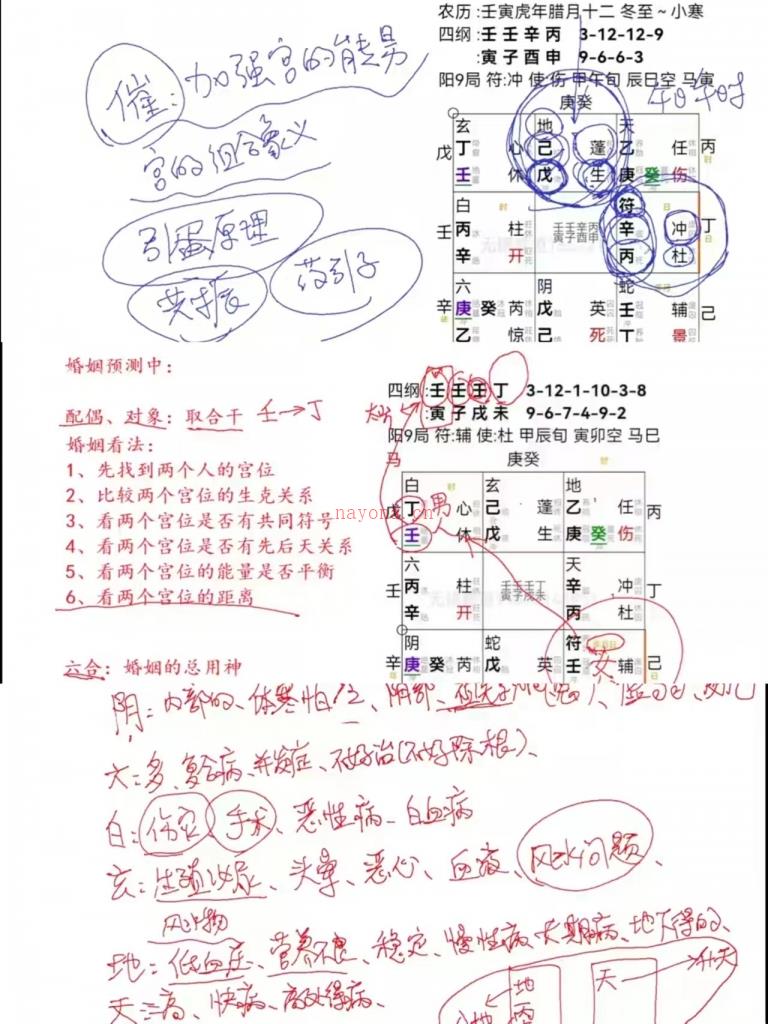 农历 :壬寅虎年腊月十二 冬至～小寒
四纲 :壬 壬 辛 丙 3-12-12-9
寅 子 酉 申 9-6-6-3
阳9局 符:冲 使:伤 甲午旬 辰巳空 马寅
庚癸
催:加强宫的能量
午日午时
宫的组合象义
引蛋原理
共振
药引子
玄 地 天
戊 丁 心 己 蓬 乙 任 丙
壬 休 戊 生 庚 癸 伤
白 符
壬 丙 柱 辛 冲 丁
辛 开 丙 杜
壬壬辛丙
寅子酉申
六 阴 蛇
辛 庚 癸 芮 戊 英 壬 辅 己
乙 惊 己 死 丁 景
婚姻预测中：
配偶、对象：取合干 壬→丁
婚姻看法：
1、先找到两个人的宫位
2、比较两个宫位的生克关系
3、看两个宫位是否有共同符号
4、看两个宫位是否有先后天关系
5、看两个宫位的能量是否平衡
6、看两个宫位的距离
六合：婚姻的总用神
四纲 :壬 壬 壬 丁 3-12-1-10-3-8
寅 子 戌 未 9-6-7-4-9-2
阳9局 符:辅 使:杜 甲辰旬 寅卯空 马巳
马 庚癸
白 玄 地
戊 丁 男 心 己 蓬 乙 任 丙
壬 休 戊 生 庚 癸 伤
六 天
壬 丙 柱 辛 冲 丁
辛 开 丙 杜
壬壬壬丁
寅子戌未
阴 蛇 符
辛 庚 癸 芮 戊 英 壬 女 辅 己
nayona.cn
阴：内部的、体寒怕
六：多、复合病、并发症、不好治(不好除根)、
白：伤灾 手术、恶性病 白血病
玄：生殖泌尿、头晕、恶心、血疫、风水问题、
地：低血压、营养不良、稳定、慢性病、长期病、地下得的、
天：高、快病、高处得病、
地 天